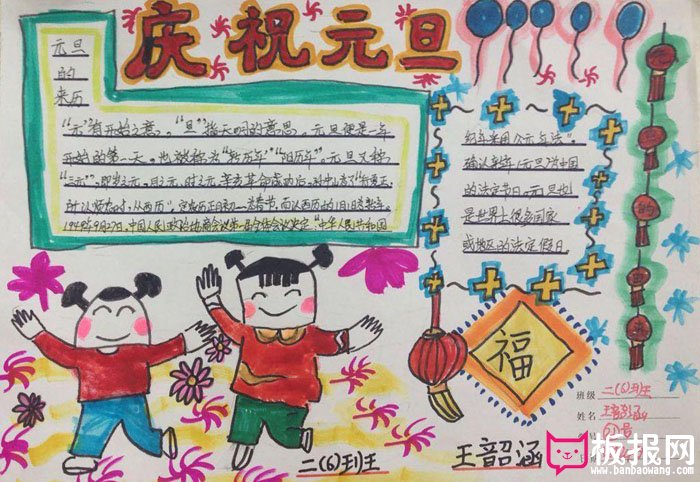 庆祝元旦
元旦
的
来历
"元"有开始之意，"旦"指天明的意思。元旦便是一年
开始的第一天。也被称为"新历年""阳历年"。元旦又称
"三元"，即岁之元、月之元、时之元。辛亥革命成功后，孙中山为了"行夏正，
所以顺农时，从西历
1949年9月27日，中国人民政治协商会议第一届全体会议决定"中华人民共和国
纪年采用公元年法"。
确认来年1月1元旦为中国
的法定节日。元旦也
是世界上很多国家
或地区的法定假日
元
旦
的
来
福
班级 二(6)班
姓名 王韶涵
二(6)班
王韶涵
板报网
www.banbaowang.com